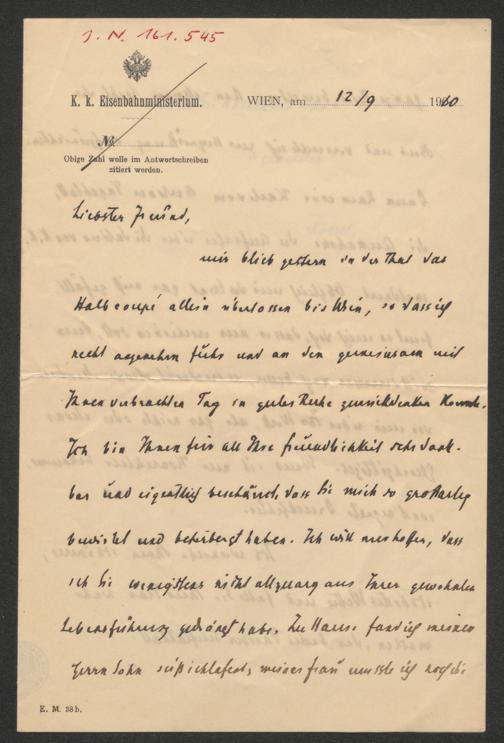 J. N. 161.545
K. k. Eisenbahnministerium.
WIEN, am 12/9 1910
№
Obige Zahl wolle im Antwortschreiben
zitiert werden.
Liebster Freund,
mir blieb gestern in der That das
Halbcoupé allein überlassen bis Wien, so dass ich
recht angenehm fuhr und an den gemeinsam mit
Ihnen verbrachten Tag in guter Ruhe zurückdenken konnte.
Ich bin Ihnen für all Ihre Freundlichkeit sehr dank-
bar und eigentlich beschämt, dass Sie mich so großartig
bewirtet und beherbergt haben. Ich will nur hoffen, dass
ich Sie wenigstens nicht allzuarg aus Ihrer gewohnten
Lebensführung gedrängt habe. Zu Hause fand ich meinen
Herrn Sohn, meiner Frau musste ich noch die
E. M. 38 b.